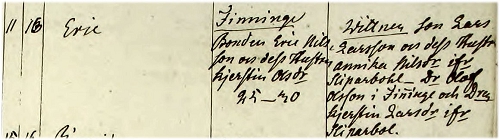 11 18 Eric
Finninge
Bonden Eric Nils-
son och dess Hustru
Kjerstin Olsdr
25-30
Wittnen Son Lars
Larsson och dess Hustru
Annika Nilsdr ifr
Stiparbohl - Dr Olof
Olsson i Finninge och
Kjerstin Larsdr ifr
Stiparbol.